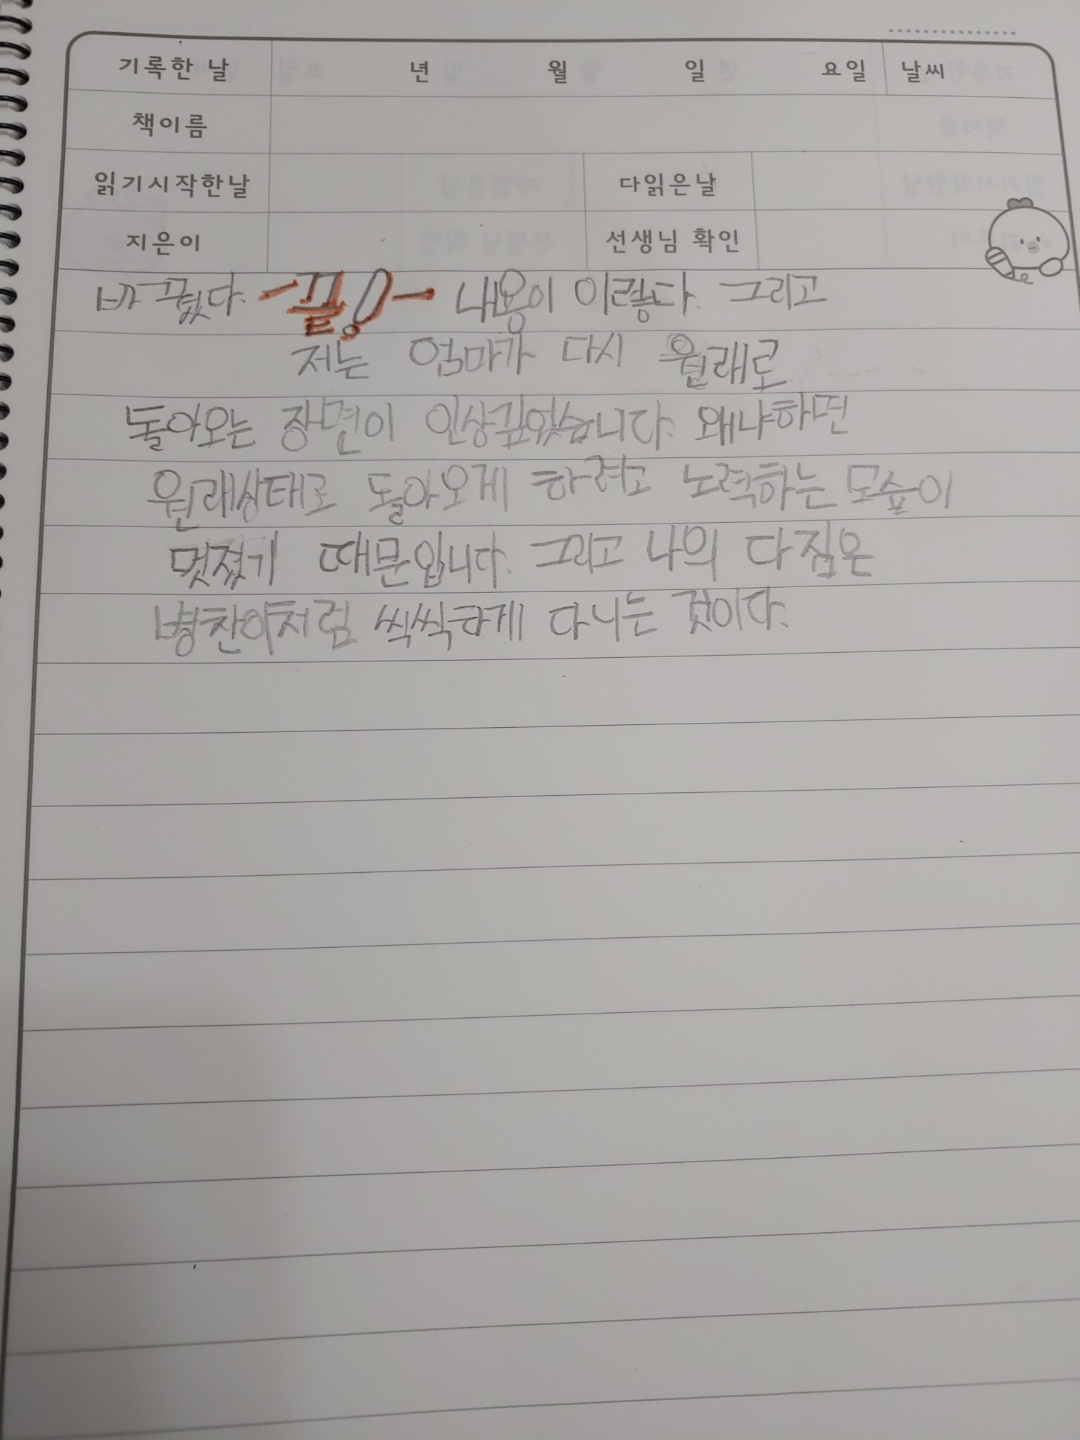 기록한 날 년 월 일 요일 날씨
책이름
읽기시작한날 다읽은날
지은이 선생님 확인
바꼈다. -끝!- 내용이 이렇다. 그리고
저는 엄마가 다시 원래로
돌아오는 장면이 인상깊었습니다. 왜냐하면
원래상태로 돌아오게 하려고 노력하는 모습이
멋졌기 때문입니다. 그리고 나의 다짐은
병찬이처럼 씩씩하게 다니는 것이다.